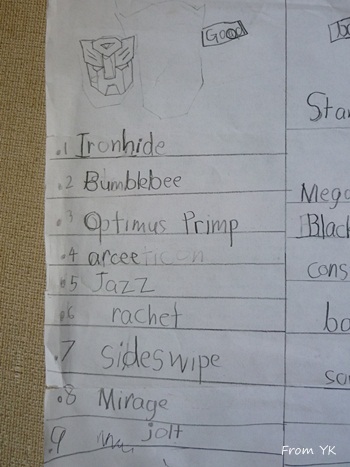 Good
.1 Ironhide
.2 Bumblebee
.3 Optimus Primp
.4 arcee
.5 Jazz
.6 rachet
.7 sideswipe
.8 Mirage
.9 jolt
Star
Mega
Black
cons
ba
From YK